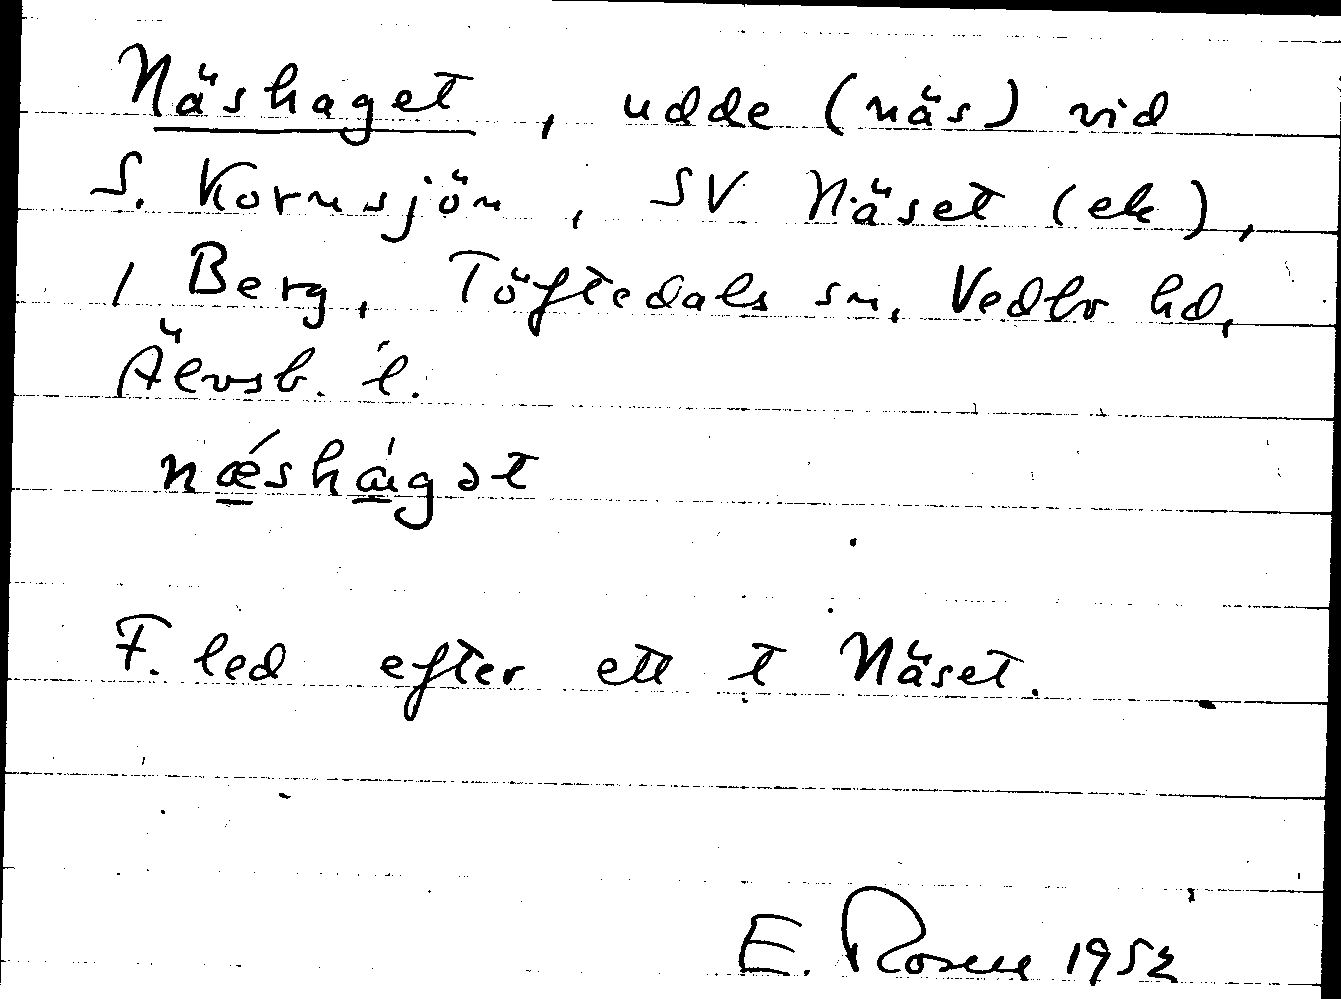 Näshaget, udde (näs) vid
S. Kornsjön, SV Näset (ek),
1 Berg, Töftedals sn, Vedbo hd,
Älvsb. l.
nǽshágət
F. led efter ett t Näset.
E. Rosell 1952